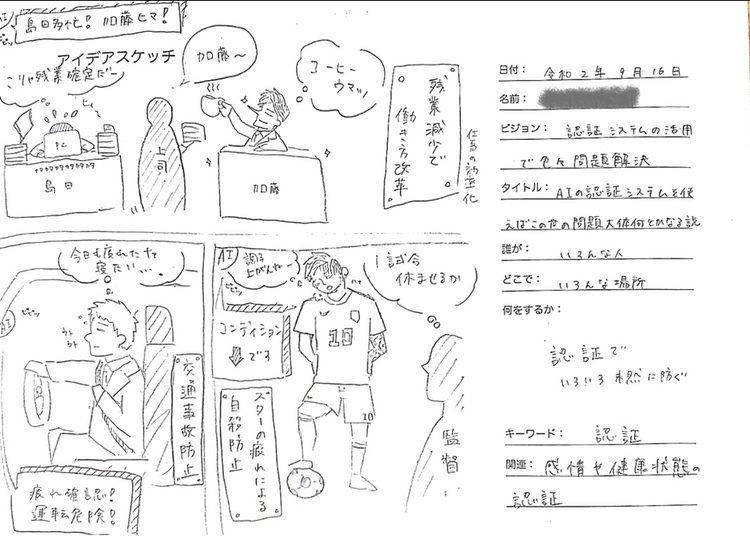 AI
島田多忙！ 加藤ヒマ！
アイデアスケッチ
こりゃ残業確定だー
加藤〜
コーヒー
ウマッ
残業減少で
働き方改革
仕事の効率化
島田
上司
加藤
今日も疲れたナァ
寝たい...
AI
ウト
ウト
交通事故防止
疲れ確認！
運転危険！
AI
調子
上がんねー
1試合
休ませるか
コンディション
↓です
10
10
スターの疲れによる
自殺防止
監督
日付： 令和2年9月16日
名前：
ビジョン： 認証システムの活用
で色々問題解決
タイトル： AIの認証システムを使
えばこの世の問題大体何とかなる説
誰が： いろんな人
どこで： いろんな場所
何をするか：
認証で
いろいろ未然に防ぐ
キーワード： 認証
関連： 感情や健康状態の
認証